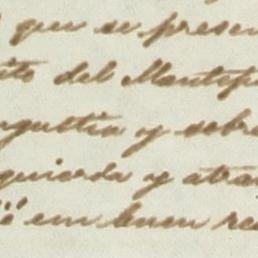 que se presen
ito del Montep
ngustia y sobre
quierda y atra
en buen re